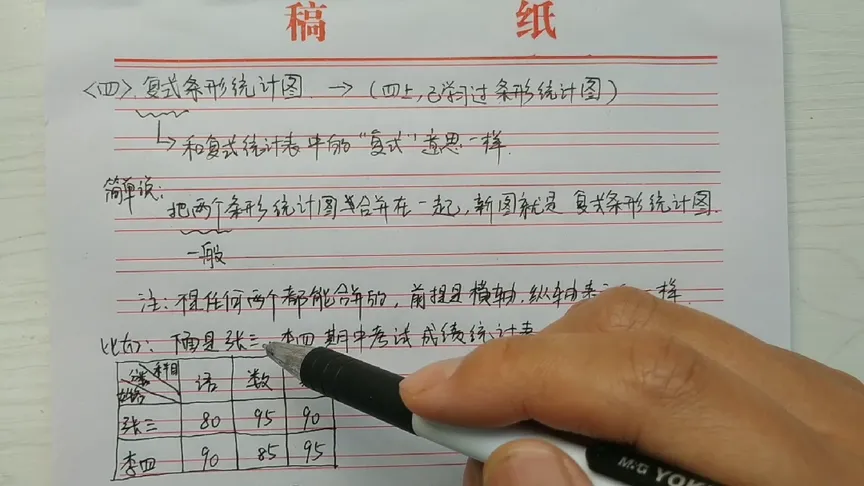 稿 纸
<四>. 复式条形统计图 → (四上,已学习过条形统计图)
和复式统计表中的"复式"意思一样.
简单说:
把两个条形统计图合并在一起,新图就是 复式条形统计图.
一般
注: 不是任何两个都能合并的, 前提是横轴,纵轴表 一样.
比如: 下面是张三、李四期中考试成绩统计表
分数 科目
姓名 语 数
张三 80 95 90
李四 90 85 95
M&G YOK